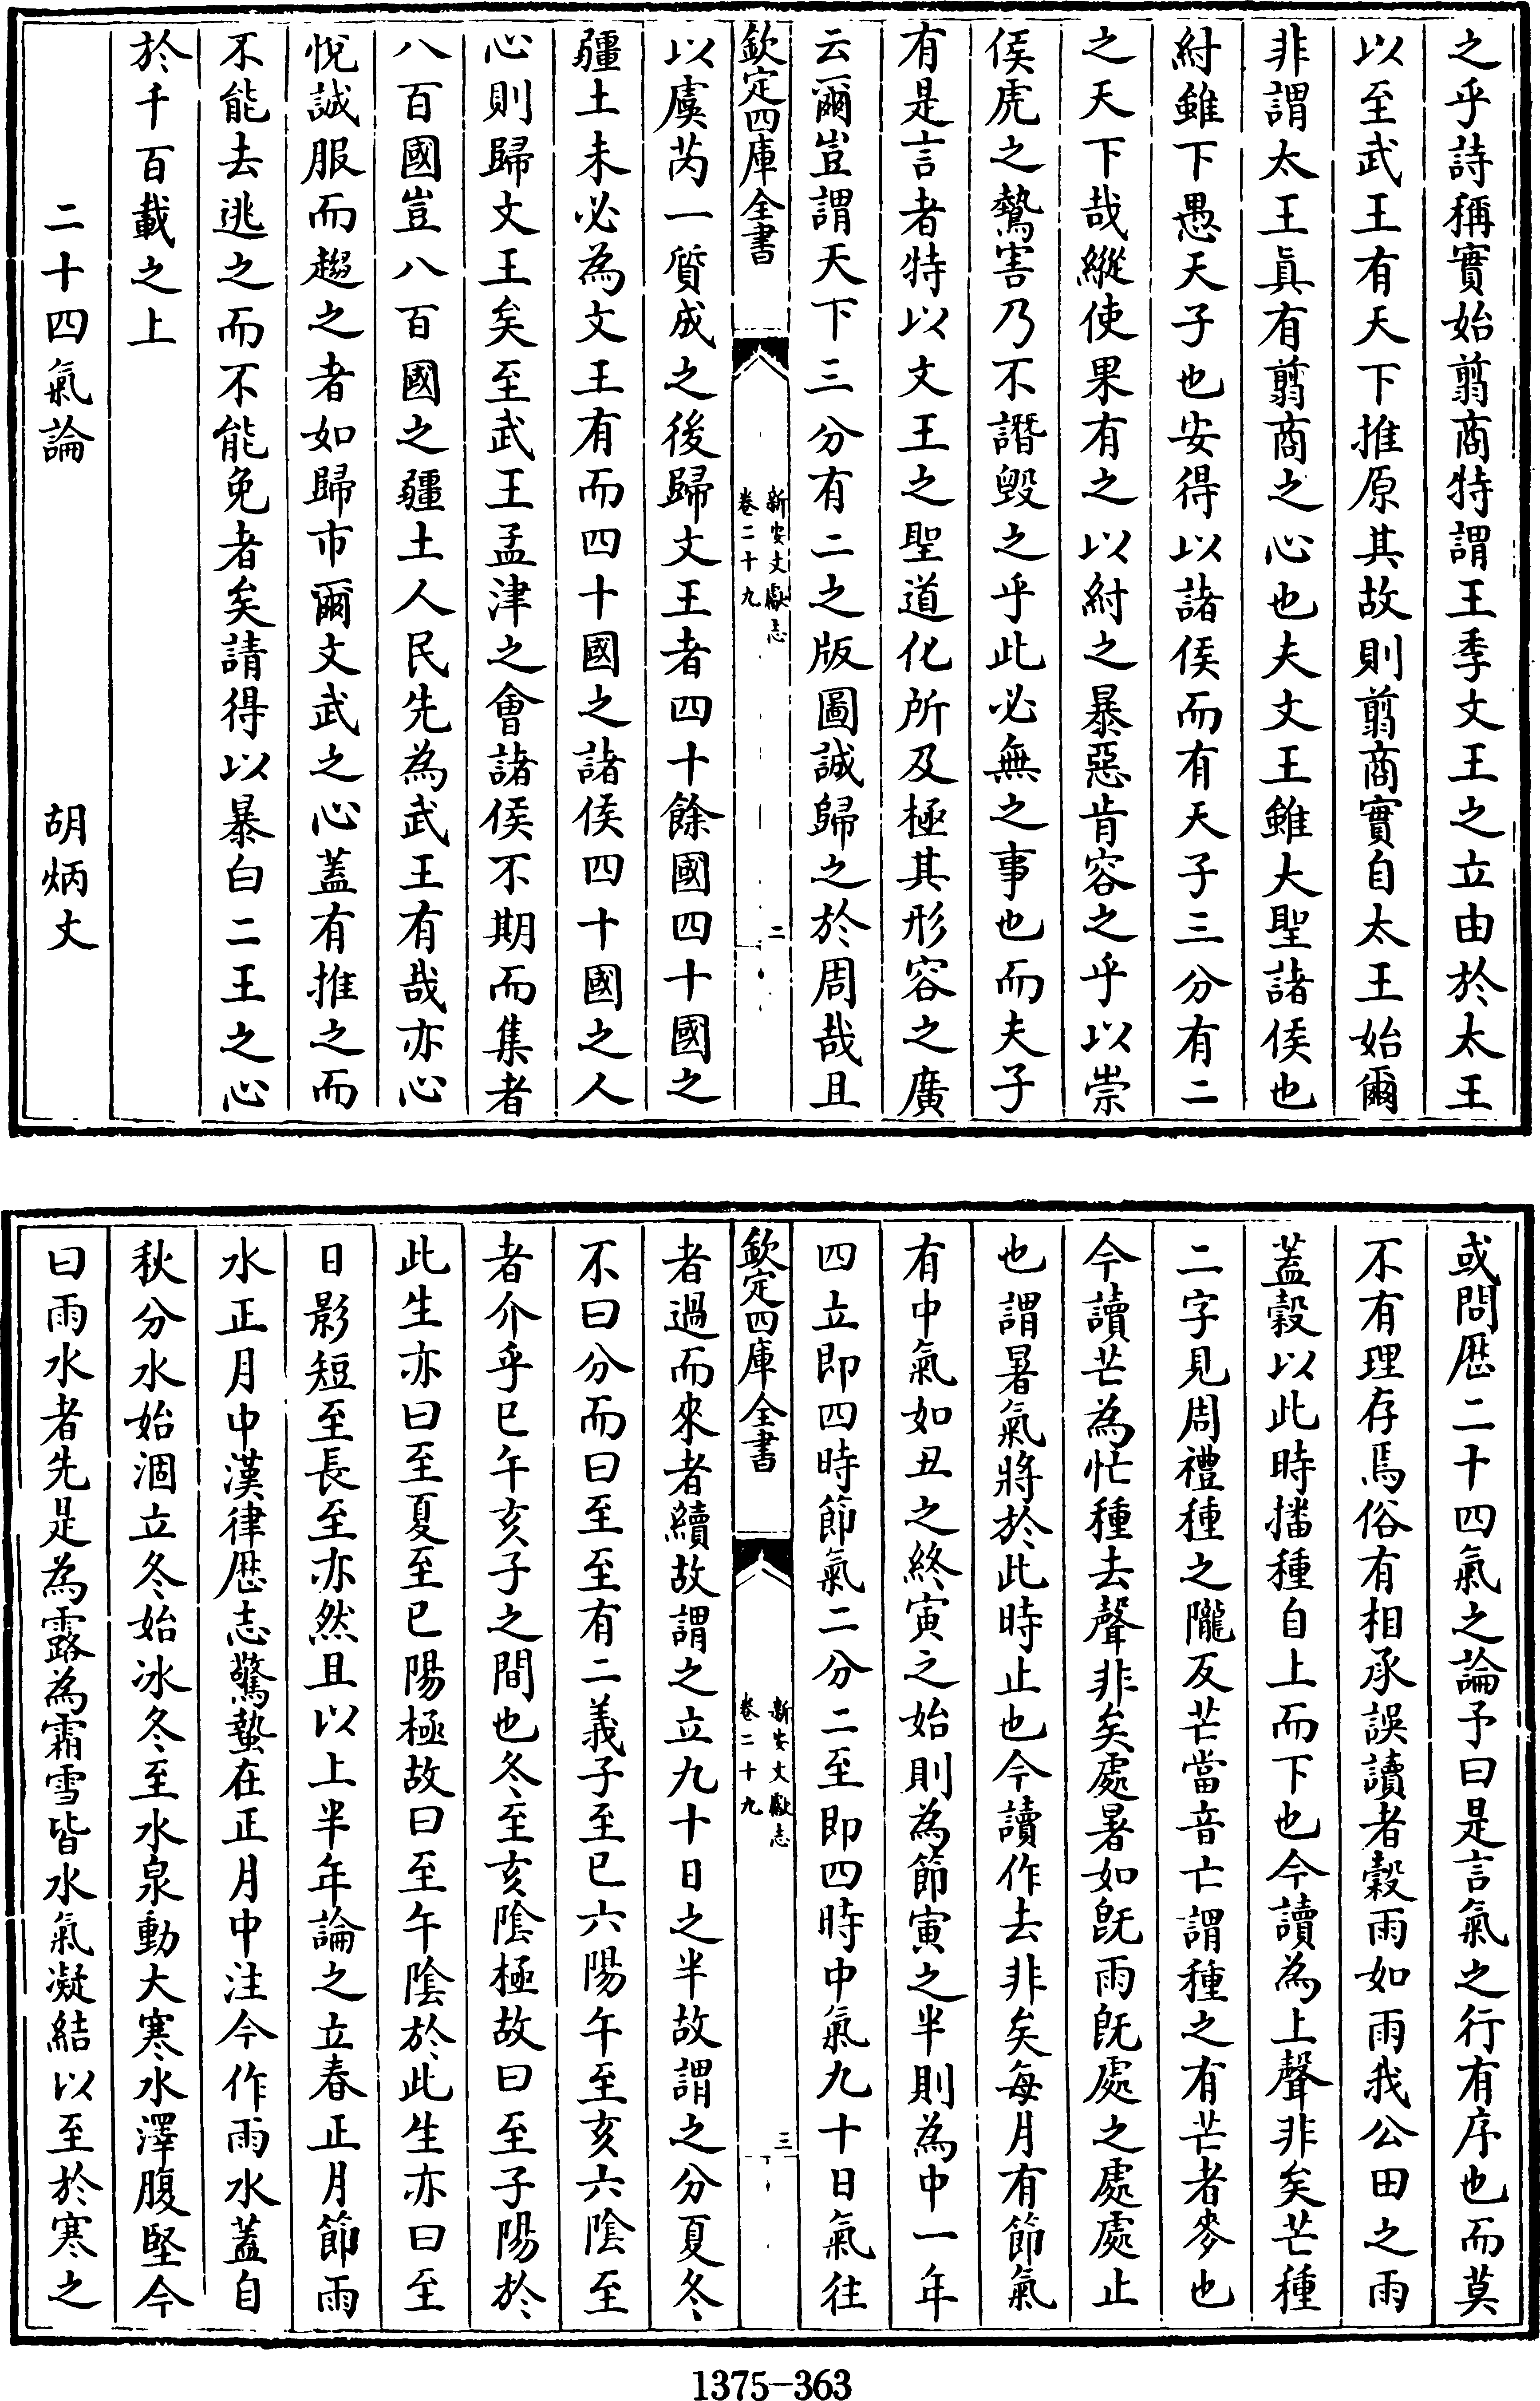 之乎詩稱實始翦商特謂王季文王之立由於太王
以至武王有天下推原其故則翦商實自太王始爾
非謂太王眞有翦商之心也夫文王雖大聖諸侯也
紂雖下愚天子也安得以諸侯而有天子三分有二
之天下哉縱使果有之以紂之暴惡肯容之乎以崇
侯虎之鷙害乃不譖毀之乎此必無之事也而夫子
有是言者特以文王之聖道化所及極其形容之廣
云爾豈謂天下三分有二之版圖誠歸之於周哉且
欽定四庫全書
新安文獻志
卷二十九
二
以虞芮一質成之後歸文王者四十餘國四十國之
疆土未必為文王有而四十國之諸侯四十國之人
心則歸文王矣至武王孟津之會諸侯不期而集者
八百國豈八百國之疆土人民先為武王有哉亦心
悅誠服而趨之者如歸市爾文武之心蓋有推之而
不能去逃之而不能免者矣請得以暴白二王之心
於千百載之上
二十四氣論 胡炳文
或問歴二十四氣之論予曰是言氣之行有序也而莫
不有理存焉俗有相承誤讀者穀雨如雨我公田之雨
蓋穀以此時播種自上而下也今讀為上聲非矣芒種
二字見周禮種之隴反芒當音亡謂種之有芒者麥也
今讀芒為忙種去聲非矣處暑如旣雨旣處之處處止
也謂暑氣將於此時止也今讀作去非矣每月有節氣
有中氣如丑之終寅之始則為節寅之半則為中一年
四立即四時節氣二分二至即四時中氣九十日氣往
欽定四庫全書
新安文獻志
卷二十九
三
者過而來者續故謂之立九十日之半故謂之分夏冬
不曰分而曰至至有二義子至巳六陽午至亥六陰至
者介乎巳午亥子之間也冬至亥陰極故曰至子陽於
此生亦曰至夏至巳陽極故曰至午陰於此生亦曰至
日影短至長至亦然且以上半年論之立春正月節雨
水正月中漢律歴志驚蟄在正月中注今作雨水蓋自
秋分水始涸立冬始冰冬至水泉動大寒水澤腹堅今
曰雨水者先是為露為霜雪皆水氣凝結以至於寒之
1375-363